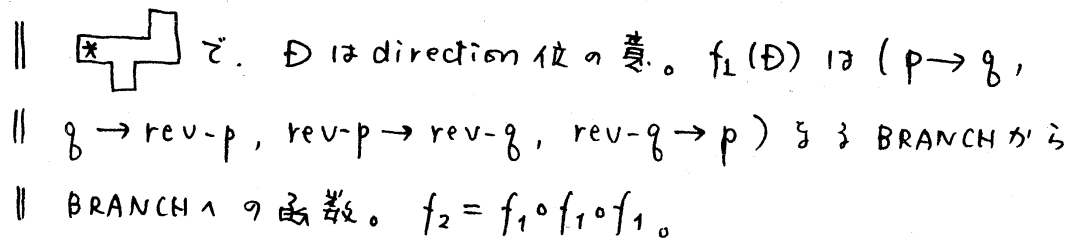 ‖ * で. Đ は direction 位の意。 f₁(Đ) は ( p → q ,
‖ q → rev-p , rev-p → rev-q , rev-q → p ) なる BRANCH から
‖ BRANCH への函数。 f₂ = f₁∘f₁∘f₁。